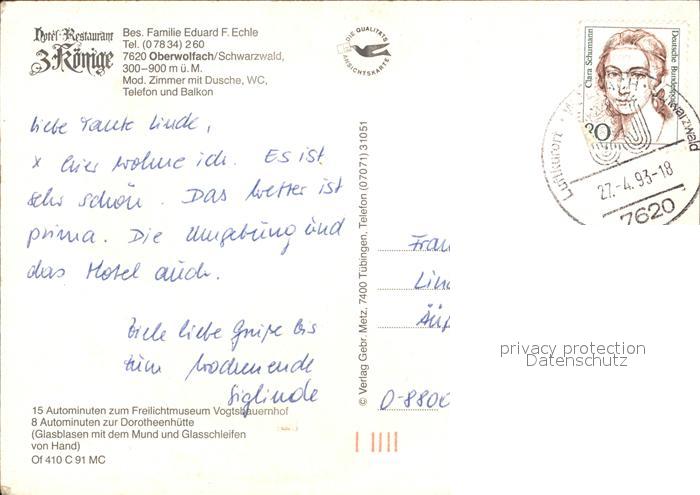 Hotel-Restaurant
3 Könige
Bes. Familie Eduard F. Echle
Tel. (0 78 34) 2 60
7620 Oberwolfach/Schwarzwald,
300–900 m ü. M.
Mod. Zimmer mit Dusche, WC,
Telefon und Balkon
DIE QUALITÄTS
ANSICHTSKARTE
Clara Schumann
Deutsche Bundespost
80
Luftkurort
Schwarzwald
27.-4.93-18
7620
Liebe Tante Linde,
x hier wohne ich. Es ist
sehr schön. Das Wetter ist
prima. Die Umgebung und
das Hotel auch.
Viele liebe Grüße bis
zum Wochenende
Siglinde
© Verlag Gebr. Metz, 7400 Tübingen, Telefon (07071) 31051
Frau
Lin
D-8800
privacy protection
Datenschutz
15 Autominuten zum Freilichtmuseum Vogtsbauernhof
8 Autominuten zur Dorotheenhütte
(Glasblasen mit dem Mund und Glasschleifen
von Hand)
Of 410 C 91 MC